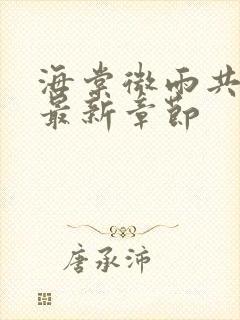 海棠微雨共
最新章节
唐承沛